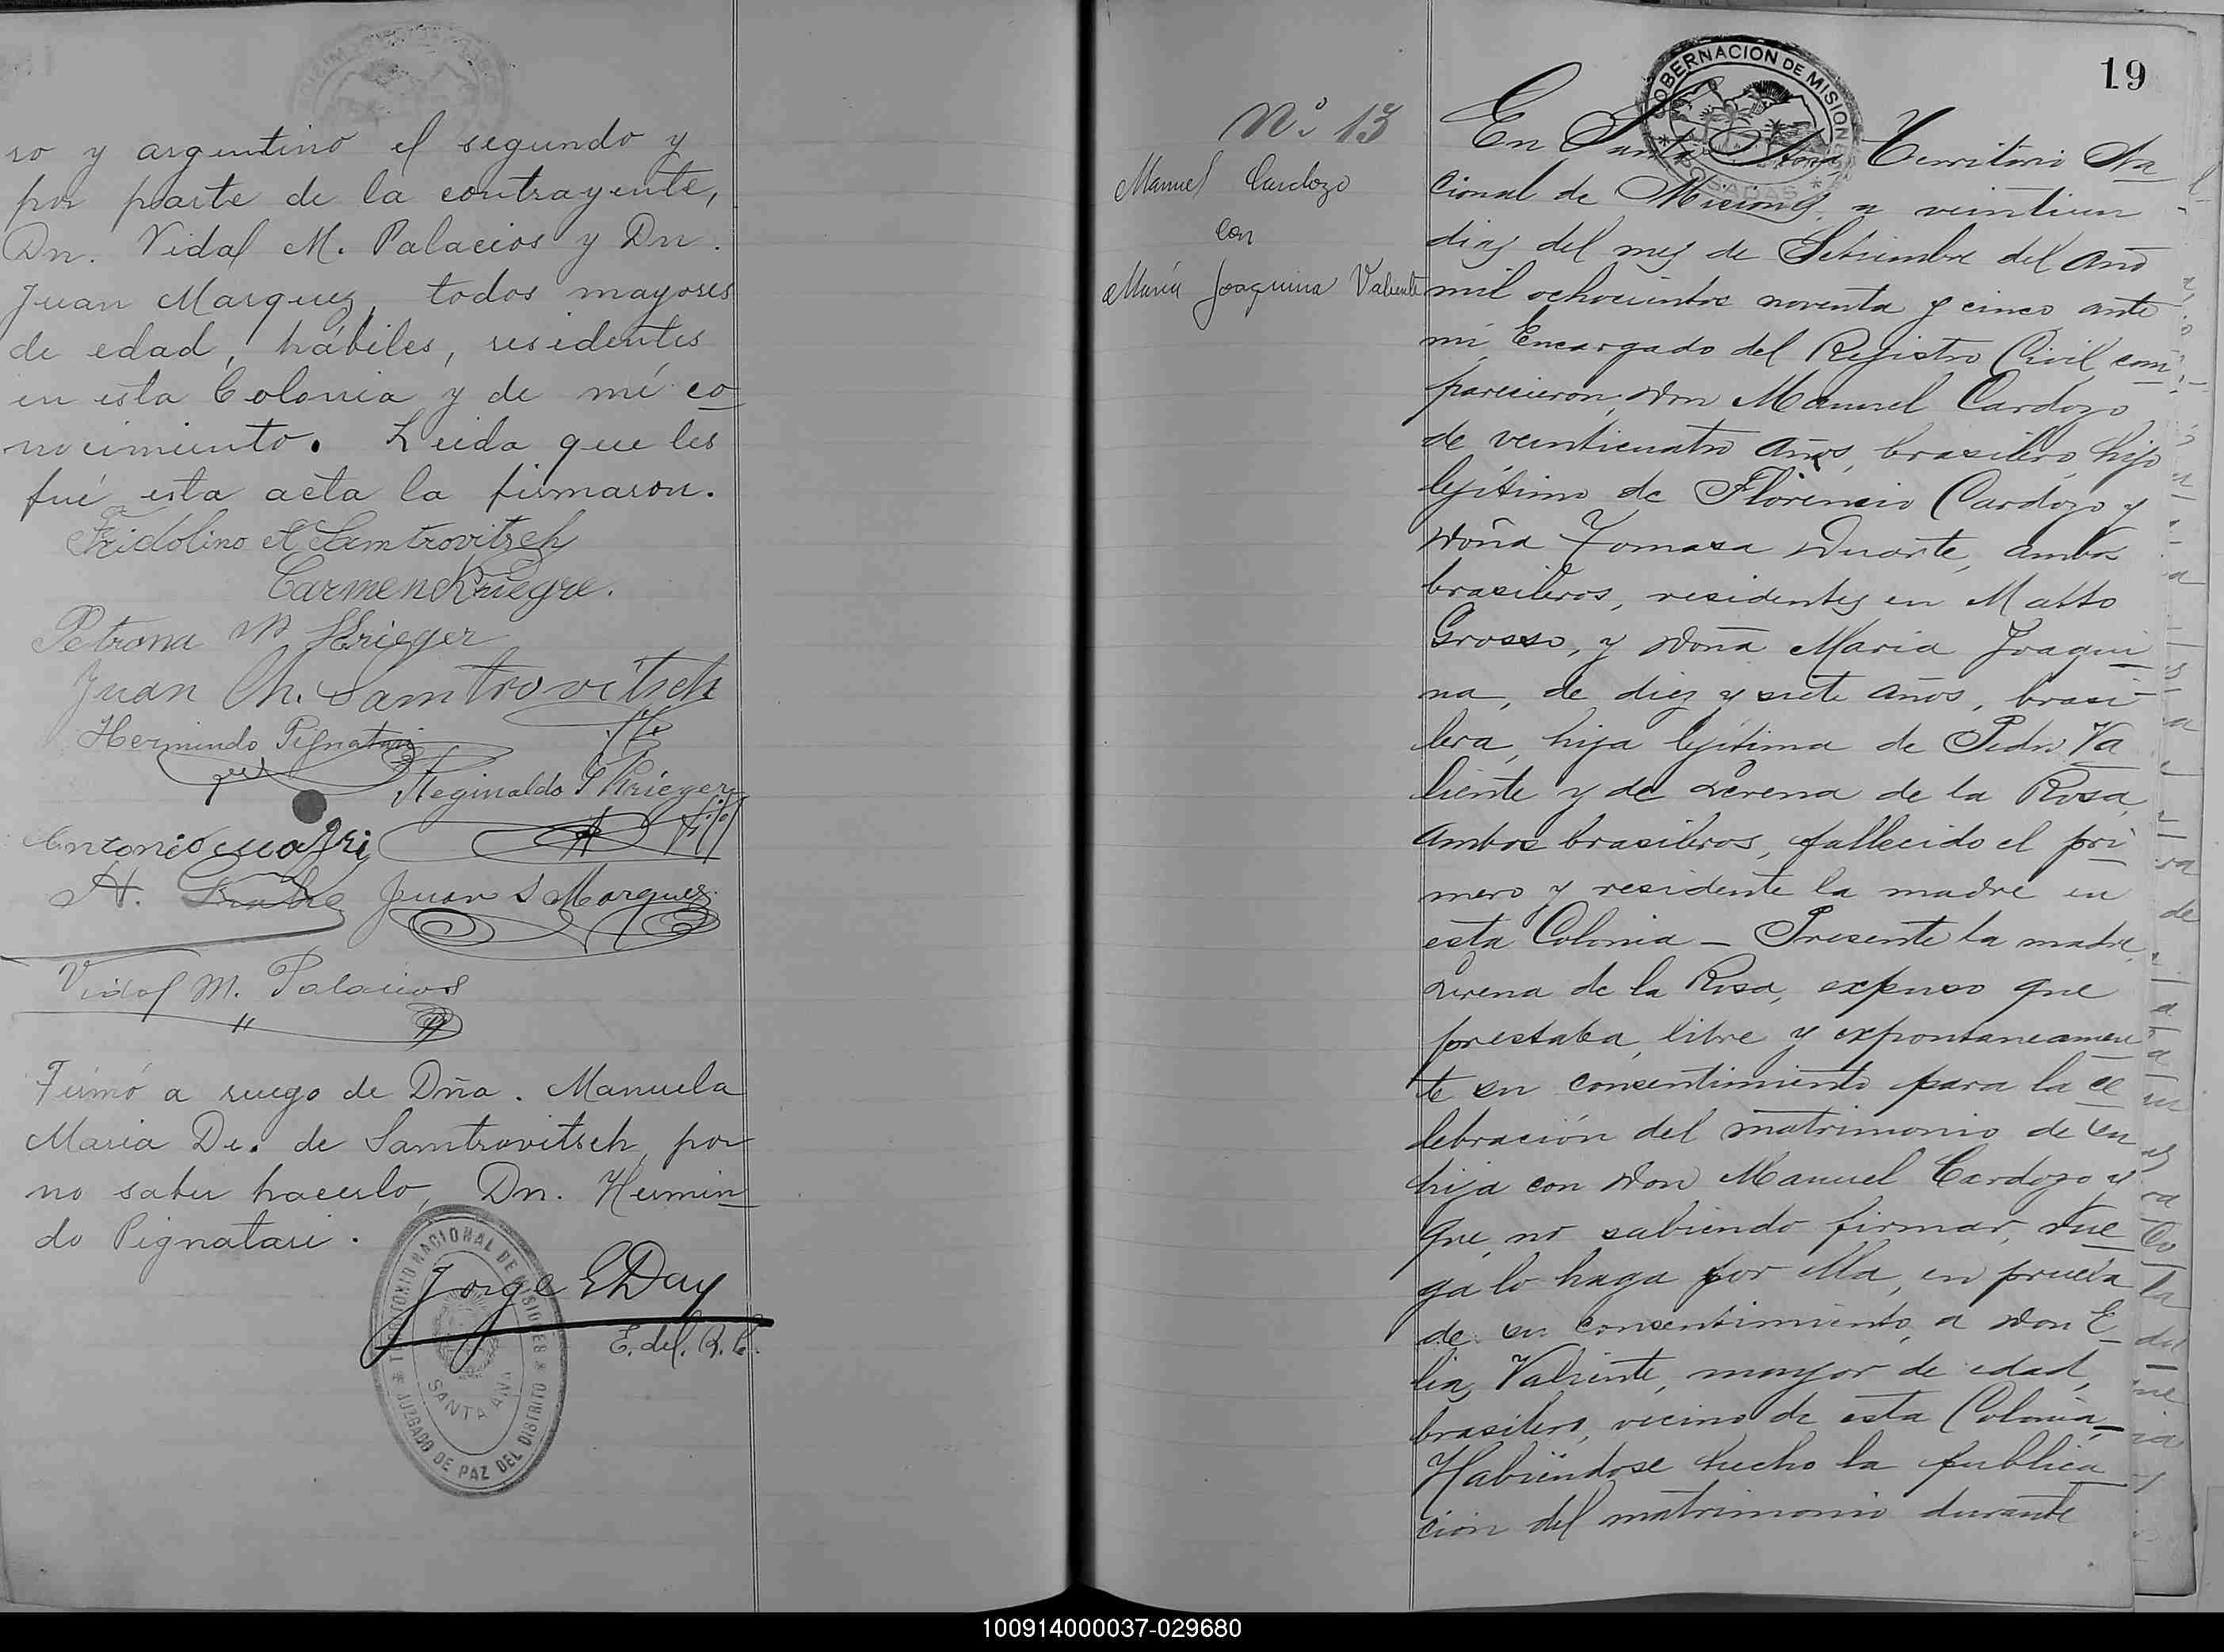 ro y argentino el segundo y
por parte de la contrayente,
Dn. Vidal M. Palacios y Dn.
Juan Marquez, todos mayores
de edad, hábiles, residentes
en esta Colonia y de mi co
nocimiento. Leida que les
fué esta acta la firmaron.
Fridolino Samtrovitsch
Carmen Kriegre.
Petrona M Krieger
Juan Ch. Samtrovitsch
Hermindo Pignatari
Reginaldo Krieger
hijo
Antonio
A.
Juan S Marquez
Vidal M. Palacios
Firmó a ruego de Dña. Manuela
Maria De. de Samtrovitsch, por
no saber hacerlo, Dn. Hermin
do Pignatari.
Jorge E Day
E. del. R. C.
TERRITORIO NACIONAL DE MISIONES
JUZGADO DE PAZ DEL DISTRITO
SANTA ANA
19
GOBERNACION DE MISIONES
POSADAS
No. 13
Manuel Cardozo
con
María Joaquina Valiente
En Santa Ana, Territorio Na
cional de Misiones, a veintiun
dias del mes de Setiembre del año
mil ochocientos noventa y cinco, ante
mi, Encargado del Rejistro Civil, com
parecieron, Don Manuel Cardozo
de veinticuatro años, brasilero, hijo
lejítimo de Florencio Cardozo y
Doña Tomasa Duarte, ambos
brasileros, residentes en Matto
Grosso, y Doña Maria Joaqui
na, de diez y siete años, brasi
lera, hija lejítima de Pedro Va
liente y de Lerena de la Rosa,
ambos brasileros, fallecido el pri
mero y residente la madre en
esta Colonia - Presente la madre,
Lerena de la Rosa, expuso que
prestaba, libre y expontaneamen
te su consentimiento para la ce
lebración del matrimonio de su
hija con Don Manuel Cardozo y
que, no sabiendo firmar, rue
ga lo haga por ella, en prueba
de su consentimiento, a Don E
lias Valiente, mayor de edad,
brasilero, vecino de esta Colonia,
Habiendose hecho la publica
cion del matrimonio durante
100914000037-029680